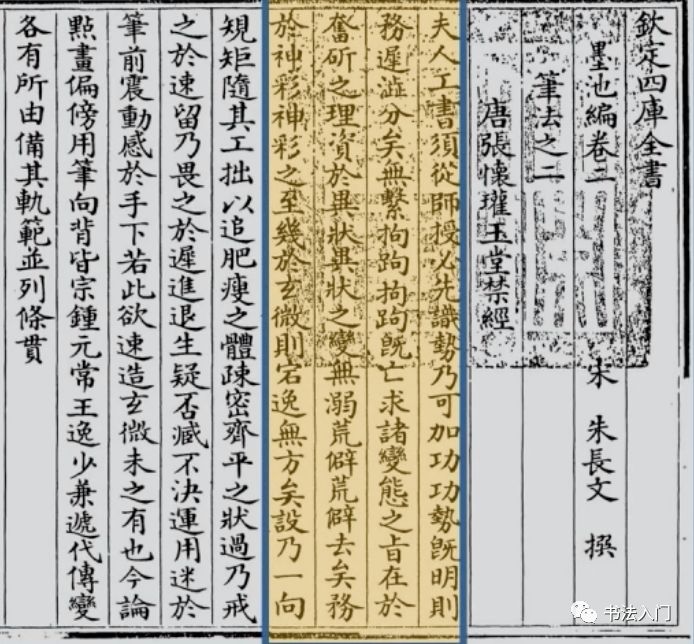 欽定四庫全書
墨池編卷二 宋 朱長文 撰
筆法之二
唐張懷瓘玉堂禁經
夫人工書須從師授必先識勢乃可加功功勢既明則
務遲澁分矣無繫拘跔拘跔既亡求諸變態之旨在於
奮斫之理資於異狀異狀之變無溺荒僻荒僻去矣務
於神彩神彩之至幾於玄微則宕逸無方矣設乃一向
規矩隨其工拙以追肥瘦之體疎密齊平之狀過乃戒
之於速留乃畏之於遲進退生疑否臧不決運用迷於
筆前震動感於手下若此欲速造玄微未之有也今論
點畫偏傍用筆向背皆宗鍾元常王逸少兼遞代傳變
各有所由備其軌範並列條貫
书法入门